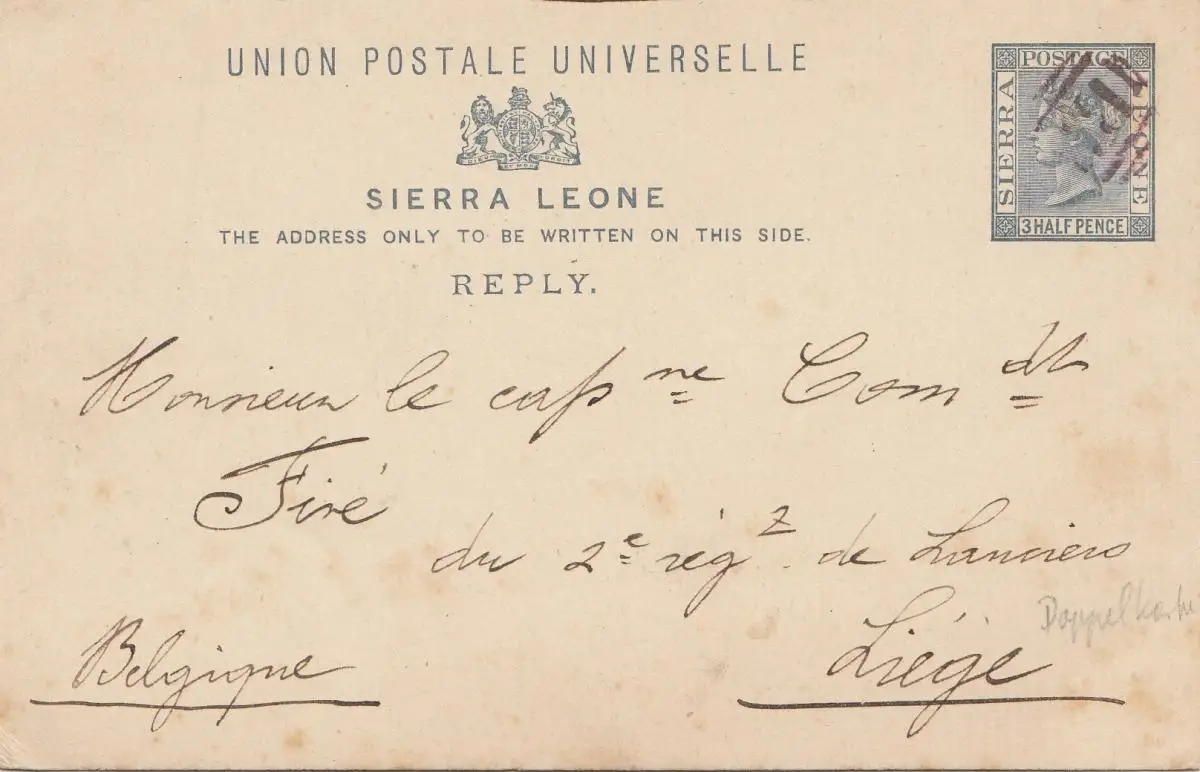 UNION POSTALE UNIVERSELLE
SIERRA LEONE
THE ADDRESS ONLY TO BE WRITTEN ON THIS SIDE.
REPLY.
POSTAGE
SIERRA
LEONE
3 HALF PENCE
Monsieur le capne Comdt
Firé
du 2e régt. de Lanciers
Liége
Doppelkarte
Belgique